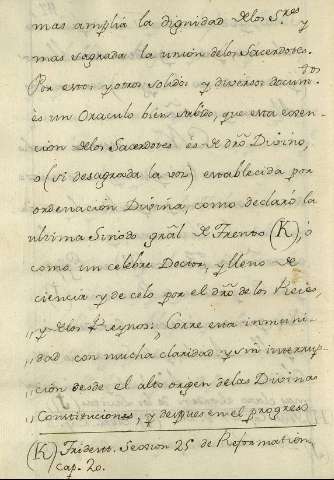 mas amplia la dignidad delos S.res y
mas sagrada la union delos Sacerdotes.
Por estos y otros solidos y diversos docum.tos
es un Oraculo bien sabido, que esta exen-
cion delos Sacerdotes es de dro Divino,
o (si desagrada la voz) establecida por
ordenacion Divina, como declaró la
ultima Sinodo gral de Trento (K), ó
como un celebre Doctor, y lleno de
ciencia y de celo por el dro de los Reies,
,, y delos Reynos: Corre esta inmuni-
,, dad con mucha claridad y sin interrup-
,, cion desde el alto origen delas Divinas
,, Constituciones, y despues en el progreso
(K) Trident. Session 25 de Reformation.
cap. 20.